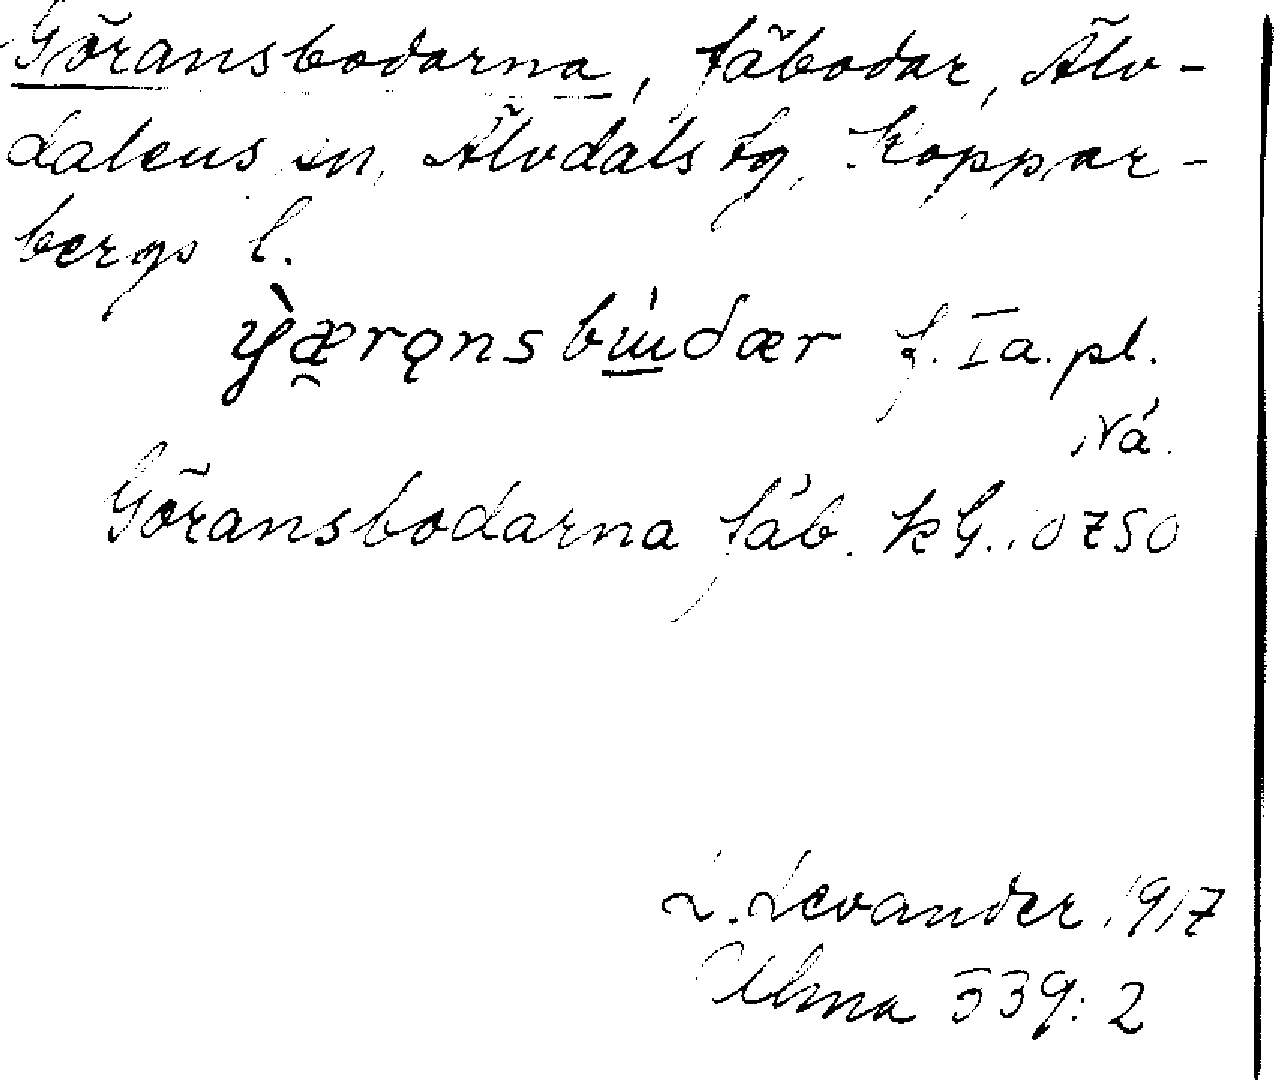 Göransbodarna, fäbodar, Älv-
dalens sn, Älvdals tg, Koppar-
bergs l.
f. Ia. pl.
Nä.
Göransbodarna fäb. kG. 0750
L. Levander 1917
Ulma 339:2